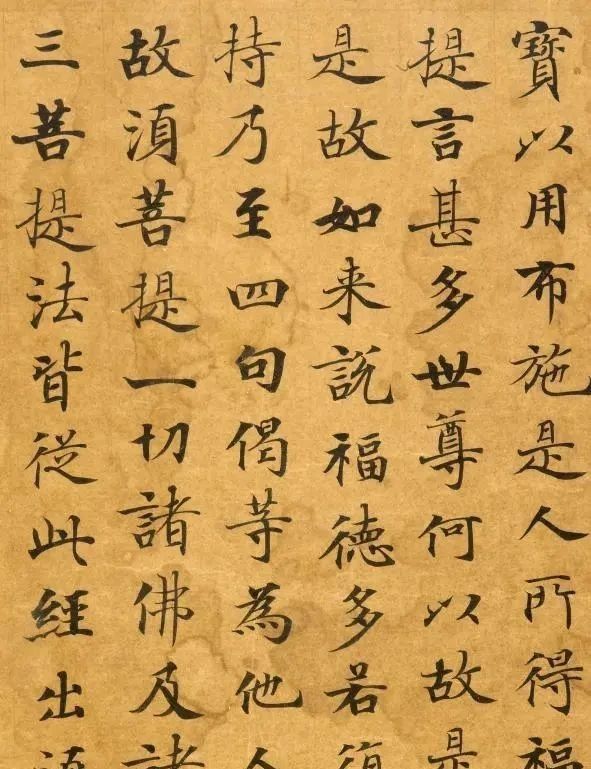 寶以用布施是人所得福
提言甚多世尊何以故是
是故如来說福德多若復
持乃至四句偈等為他人
故湏菩提一切諸佛及諸
三菩提法皆従此經出湏